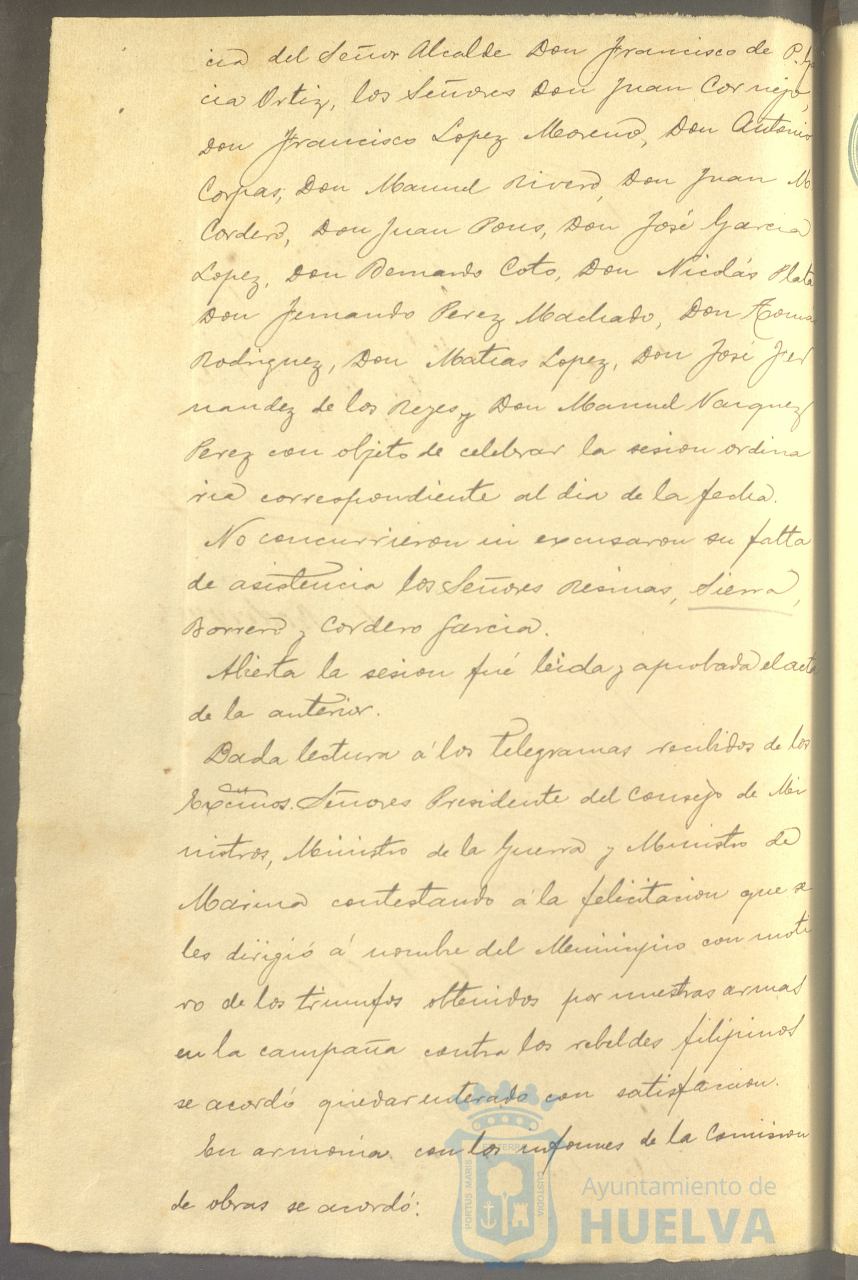 cia del Señor Alcalde Don Francisco de P. Ga
cia Ortiz, los Señores Don Juan Cornejo,
Don Francisco Lopez Moreno, Don Antonio
Corpas, Don Manuel Rivero, Don Juan M
Cordero, Don Juan Pons, Don José Garcia
Lopez, Don Bernardo Coto, Don Nicolás Plata
Don Fernando Perez Machado, Don Roma
Rodriguez, Don Matias Lopez, Don José Fer
nandez de los Reyes y Don Manuel Vazquez
Perez con objeto de celebrar la sesion ordina
ria correspondiente al dia de la fecha.
No concurrieron ni excusaron su falta
de asistencia los Señores Resinas, Sierra,
Borrero y Cordero Garcia.
Abierta la sesion fué leida y aprobada el acta
de la anterior.
Dada lectura á los telegramas recibidos de los
Excmos. Señores Presidente del Consejo de Mi
nistros, Ministro de la Guerra y Ministro de
Marina contestando á la felicitacion que se
les dirigió á nombre del Municipio con moti
vo de los triunfos obtenidos por nuestras armas
en la campaña contra los rebeldes filipinos
se acordó quedar enterado con satisfaccion.
En armonia con los informes de la Comision
de obras se acordó:
PORTUS MARIS ET TERRAE CUSTODIA
Ayuntamiento de
HUELVA